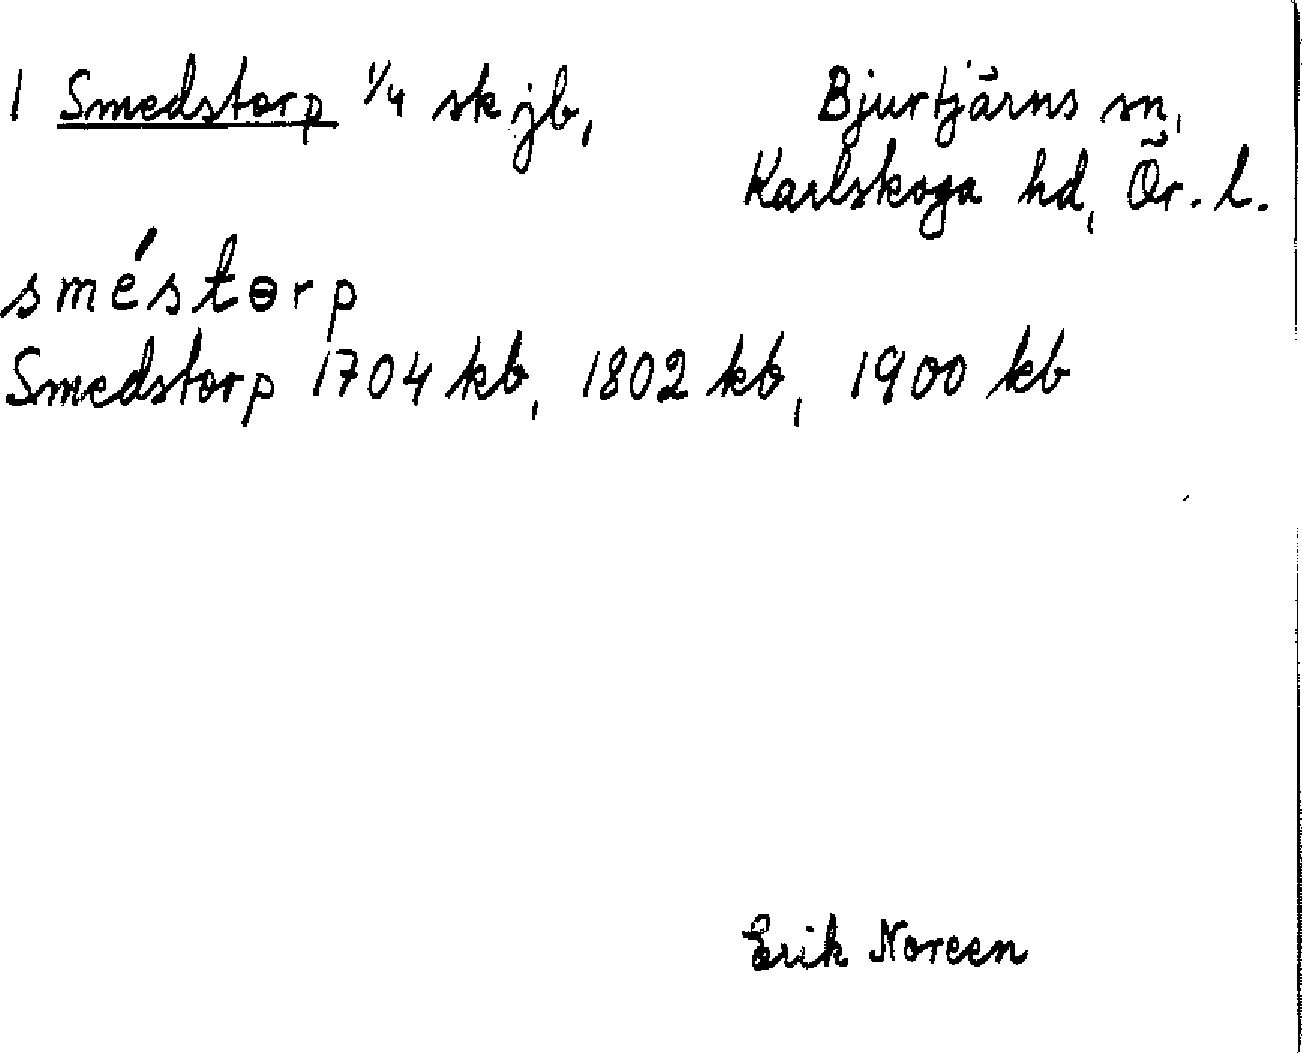 1 Smedstorp 1/4 sk jb,
Bjurtjärns sn,
Karlskoga hd, Ör. l.
sméstɵrp
Smedstorp 1704 kb, 1802 kb, 1900 kb
Erik Noreen